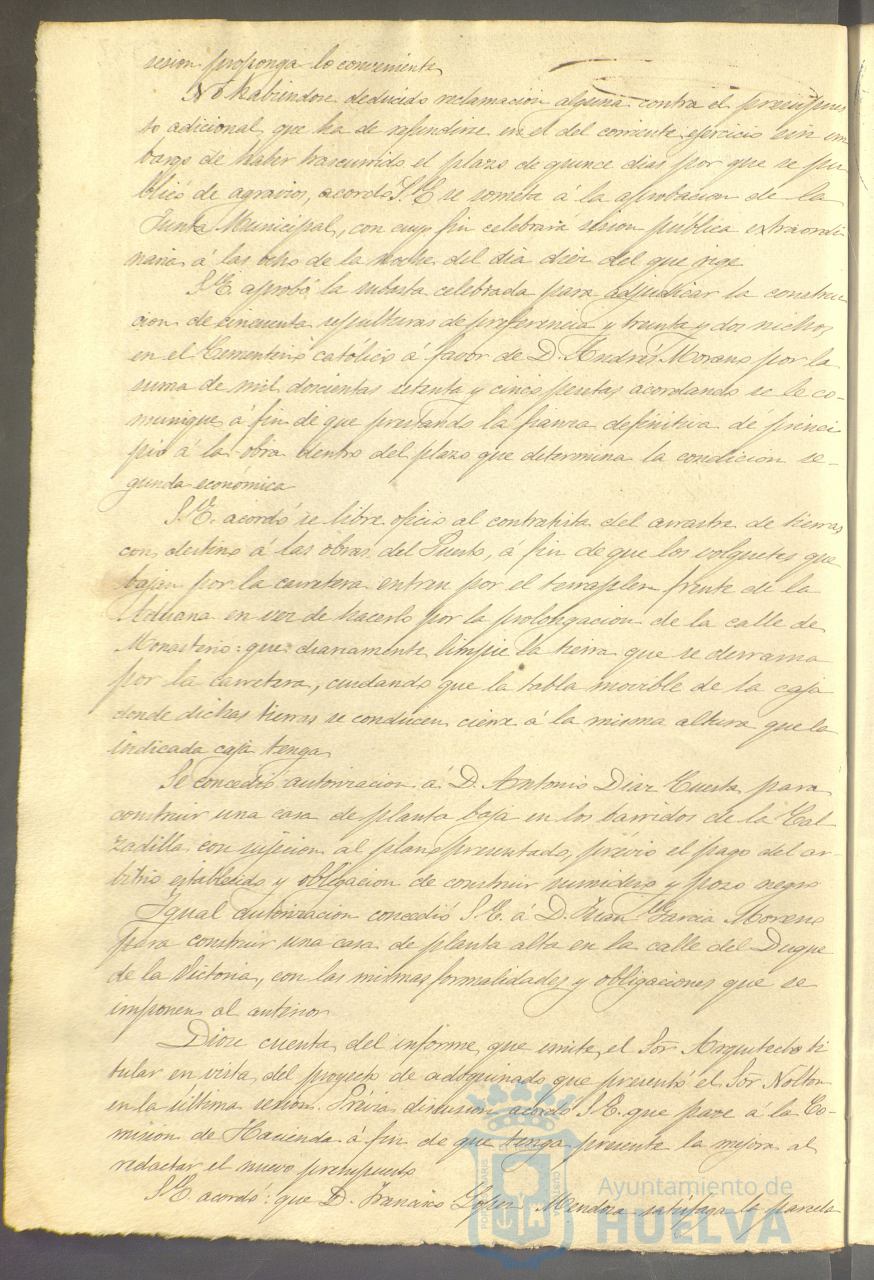 sesion proponga lo conveniente
No habiendose deducido reclamacion alguna contra el presupues
to adicional, que ha de refundirse en el del corriente ejercicio sin em
bargo de haber trascurrido el plazo de quince dias por que se pu
blicó de agravios, acordó S.E. se someta á la aprobacion de la
Junta Municipal, con cuyo fin celebrará sesion pública extraordi
naria á las ocho de la noche del dia diez del que rige
S.E. aprobó la subasta celebrada para adjudicar la construc
cion de cincuenta sepulturas de preferencia y treinta y dos nichos
en el Cementerio católico á favor de D. Andrés Moreno por la
suma de mil doscientas setenta y cinco pesetas acordando se le co-
munique á fin de que prestando la fianza definitiva dé princi
pio á la obra dentro del plazo que determina la condicion se-
gunda económica
S.E. acordó se libre oficio al contratista del arrastre de tierras
con destino á las obras del Puerto, á fin de que los volquetes que
bajan por la carretera entren por el terraplen frente de la
Aduana en vez de hacerlo por la prolongacion de la calle de
Monasterio: que diariamente limpie la tierra que se derrama
por la carretera, cuidando que la tabla movible de la caja
donde dichas tierras se conducen cierre á la misma altura que la
indicada caja tenga
Se concedió autorizacion á D. Antonio Diaz Cuesta para
construir una casa de planta baja en los barridos de la Cal
zadilla con sujecion al plano presentado, prévio el pago del ar-
bitrio establecido y obligacion de construir sumidero y pozo negro
Igual autorizacion concedió S.E. á D. Juan Garcia Moreno
para construir una casa de planta alta en la calle del Duque
de la Victoria, con las mismas formalidades y obligaciones que se
imponen al anterior
Diose cuenta del informe que emite el Sor Arquitecto ti
tular en vista del proyecto de adoquinado que presentó el Sor Nolton
en la última sesion. Prévia discusion acordó S.E. que pase á la Co-
mision de Hacienda á fin de que tenga presente la mejora al
redactar el nuevo presupuesto
S.E. acordó: que D. Francisco Lopez Mendoza satisfaga la parcela
Ayuntamiento de
HUELVA